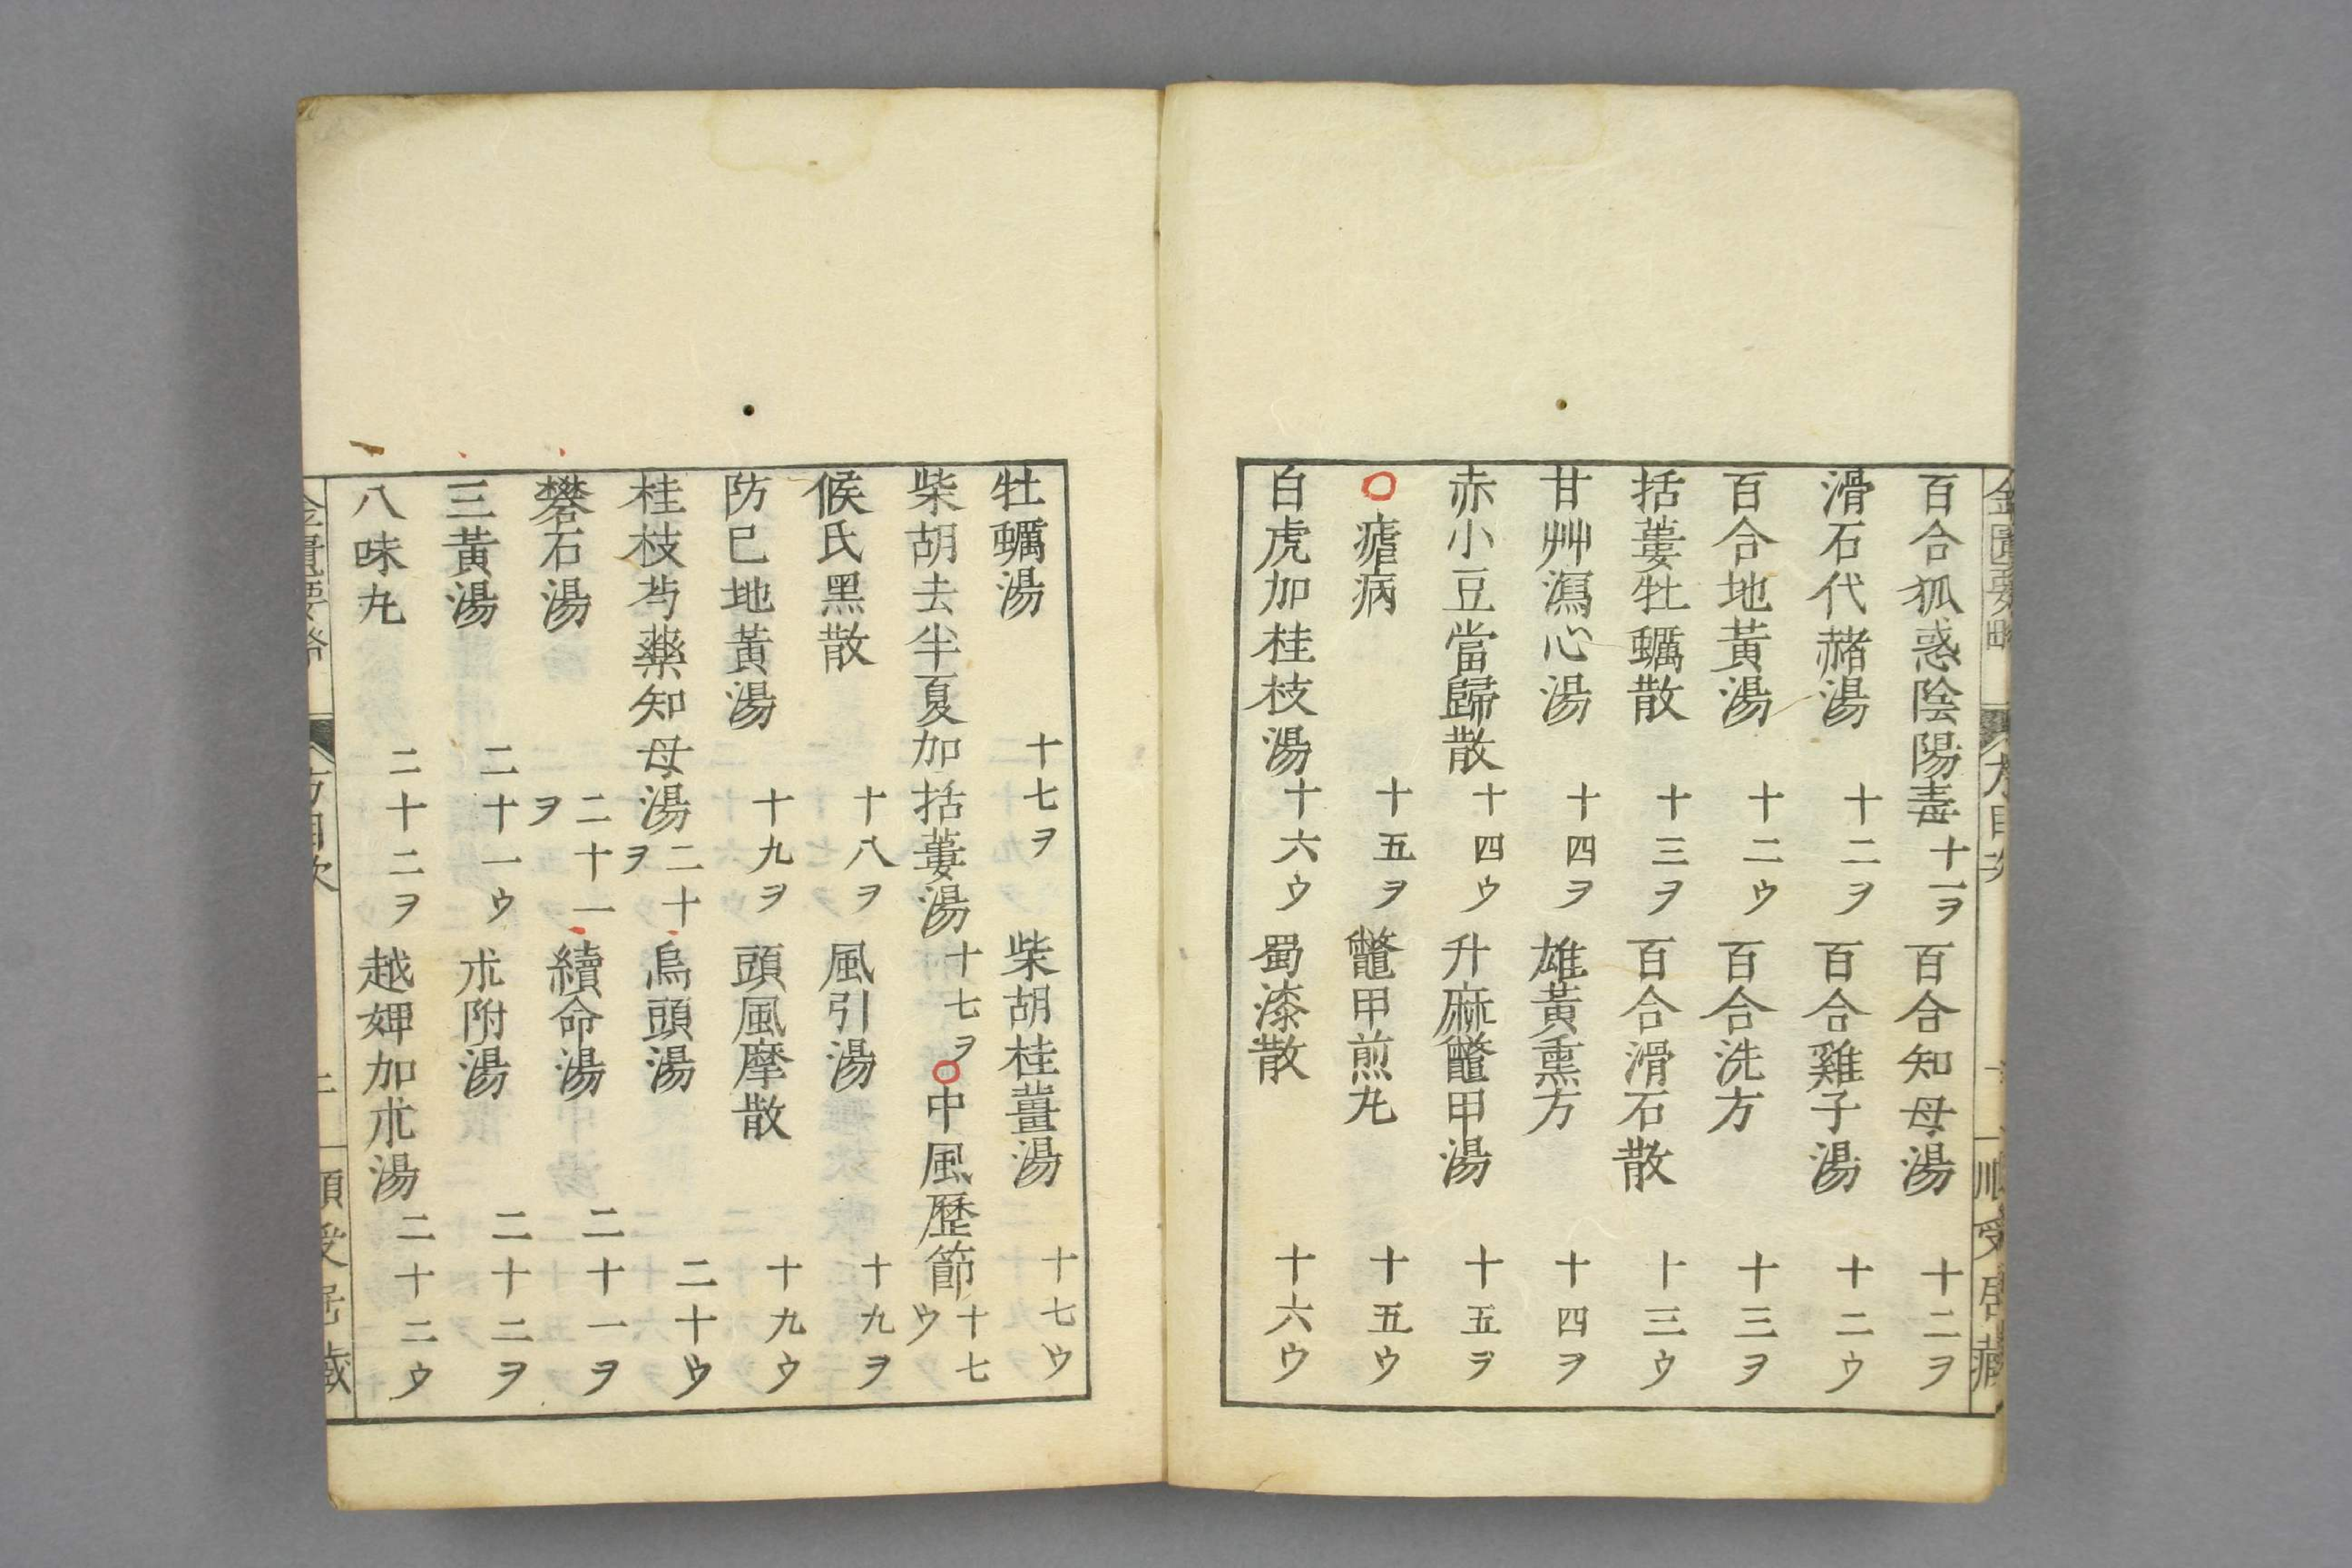 百合狐惑陰陽毒 十一ヲ 百合知母湯 十二ヲ
滑石代赭湯 十二ヲ 百合雞子湯 十二ウ
百合地黃湯 十二ウ 百合洗方 十三ヲ
括蔞牡蠣散 十三ヲ 百合滑石散 十三ウ
甘艸瀉心湯 十四ヲ 雄黃熏方 十四ヲ
赤小豆當歸散 十四ウ 升麻鼈甲湯 十五ヲ
○瘧病 十五ヲ 鼈甲煎丸 十五ウ
白虎加桂枝湯 十六ウ 蜀漆散 十六ウ
牡蠣湯 十七ヲ 柴胡桂薑湯 十七ウ
柴胡去半夏加括蔞湯 十七ヲ ○中風歷節 十七ウ
候氏黑散 十八ヲ 風引湯 十九ヲ
防已地黃湯 十九ヲ 頭風摩散 十九ウ
桂枝芍藥知母湯 二十ヲ 烏頭湯 二十ウ
礬石湯 二十一ヲ 續命湯 二十一ヲ
三黃湯 二十一ウ 朮附湯 二十二ヲ
八味丸 二十二ヲ 越婢加朮湯 二十二ウ